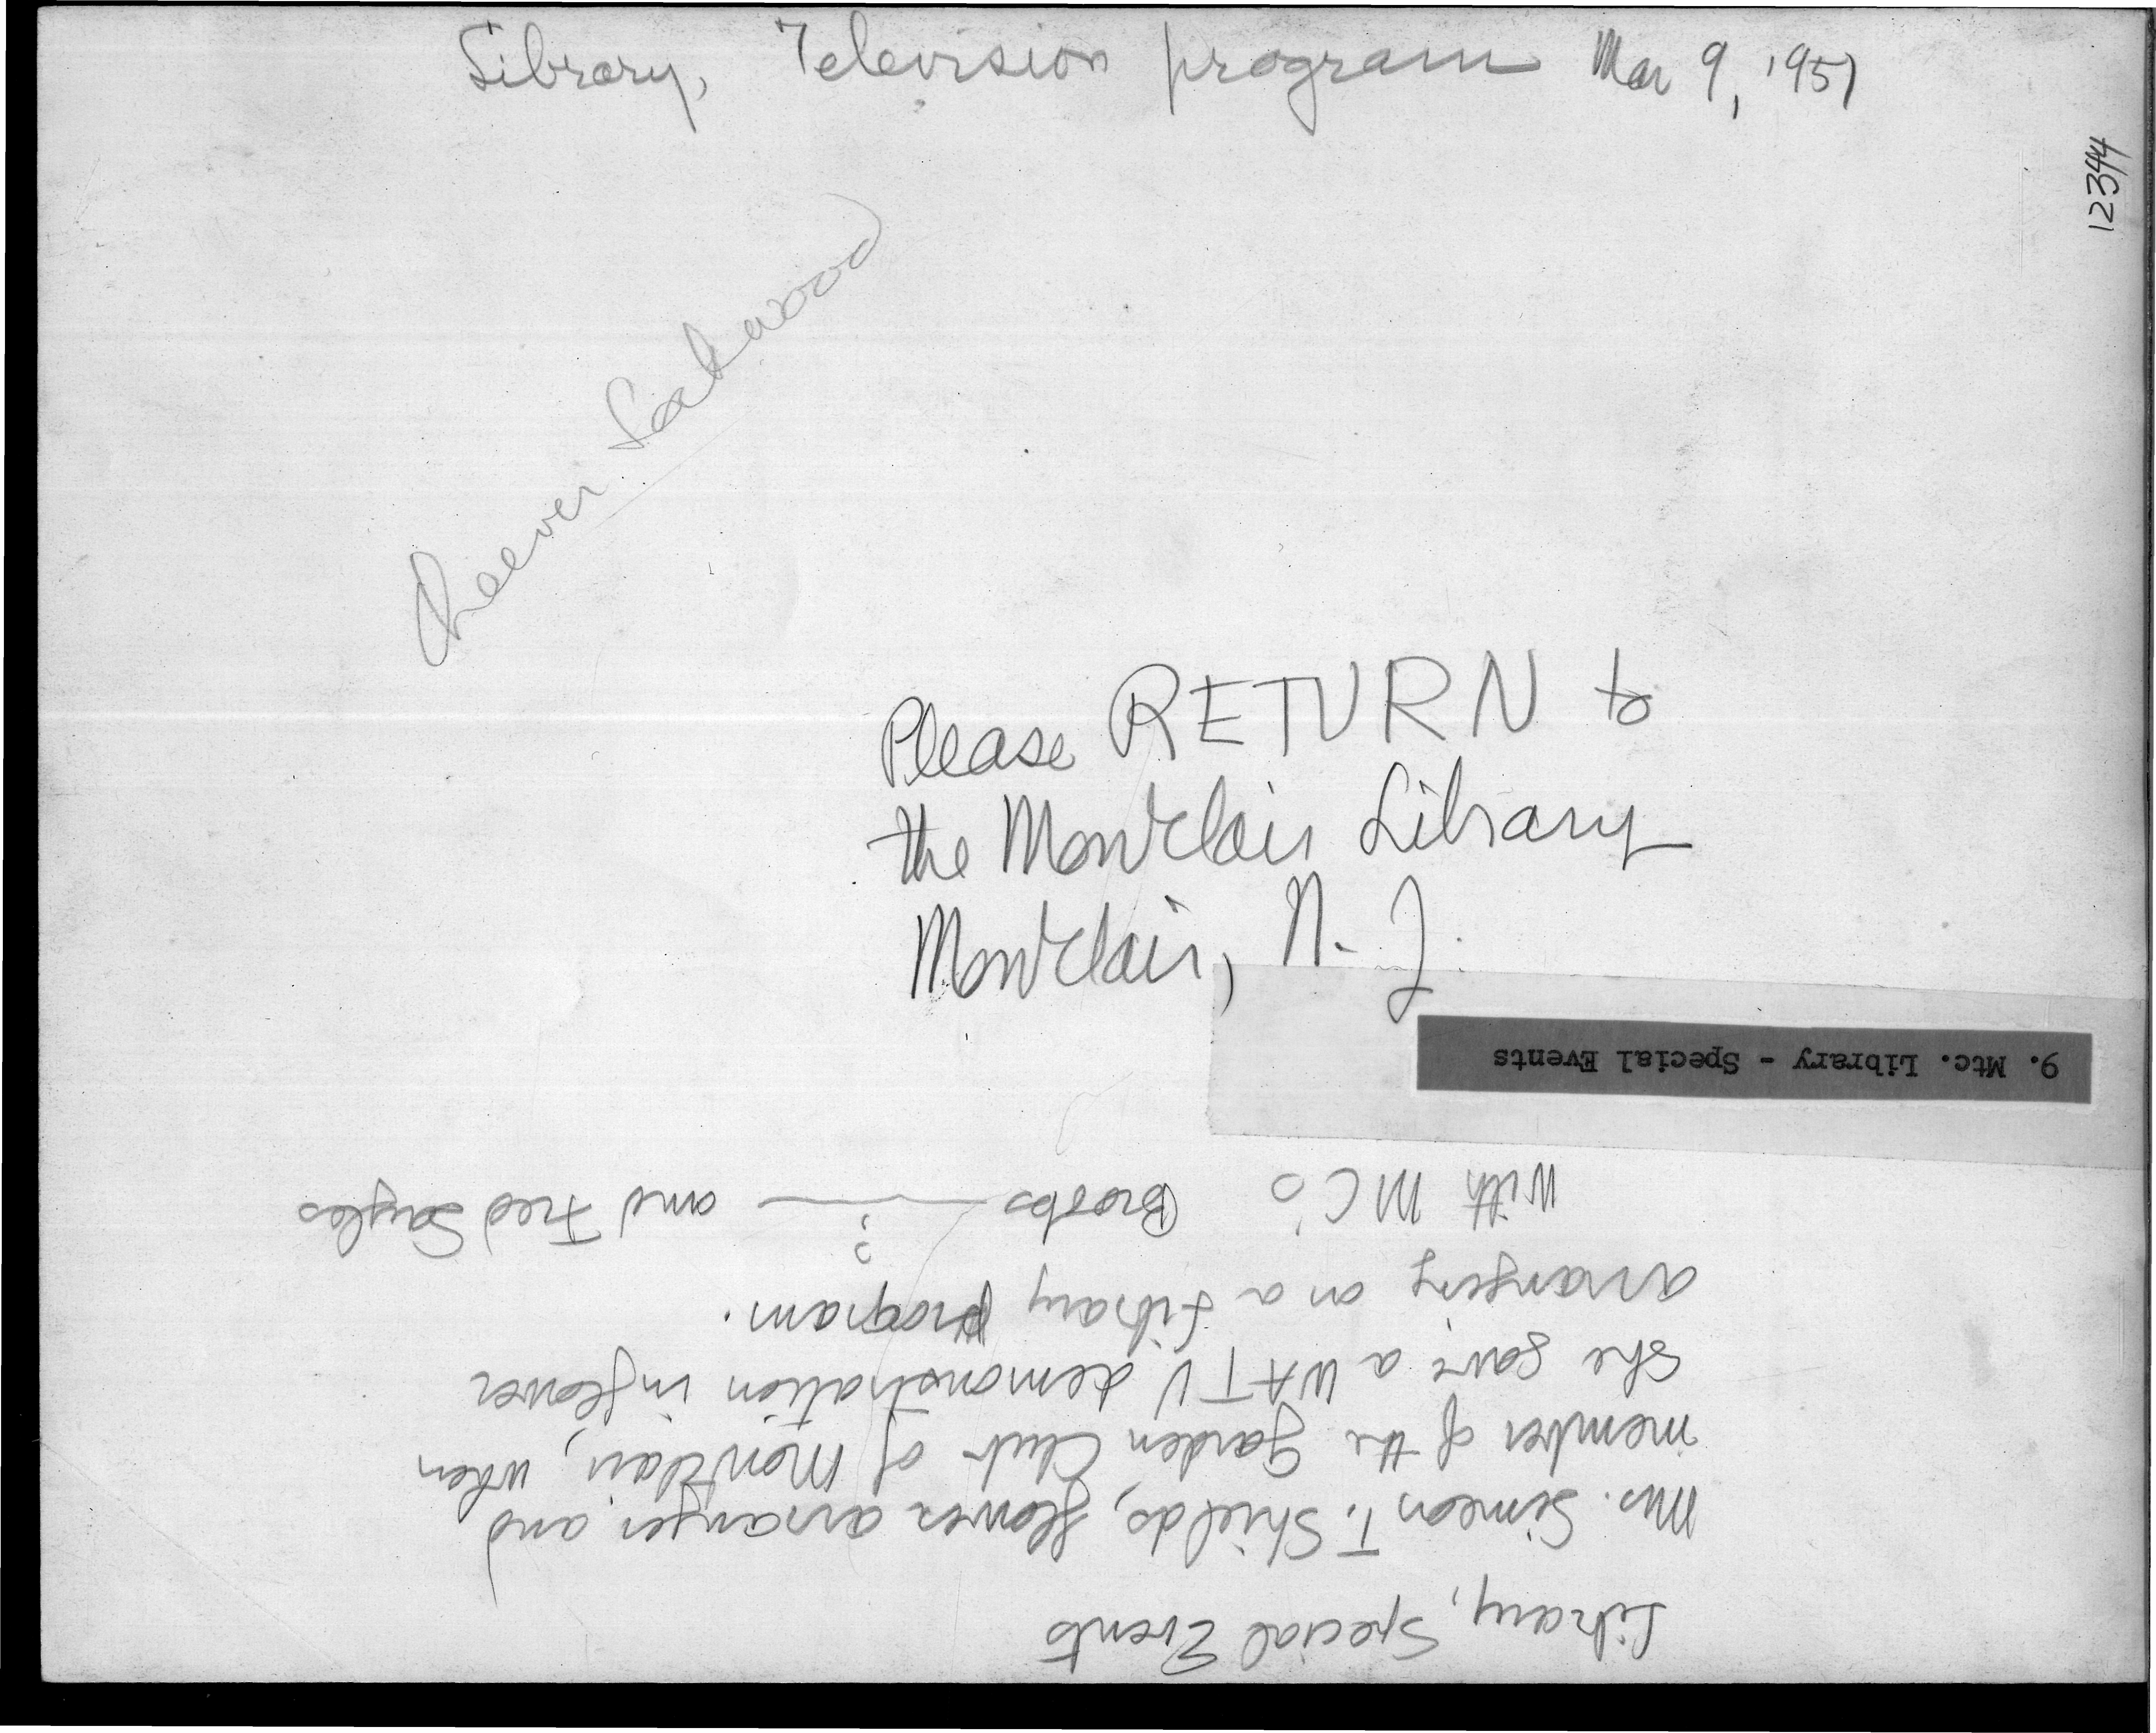 Library, Television program Mar 9, 1951
12344
Please RETURN to
the Montclair Library
Montclair, N. J.
9. Mtc. Library - Special Events
Library, Special Events
Mrs. Simeon T. Shields, flower arranger and
member of the Garden Club of Montclair, when
she gave a WATV demonstration in flower
arranging on a Library program.
With MC's Brooks ? and Fred Sayles